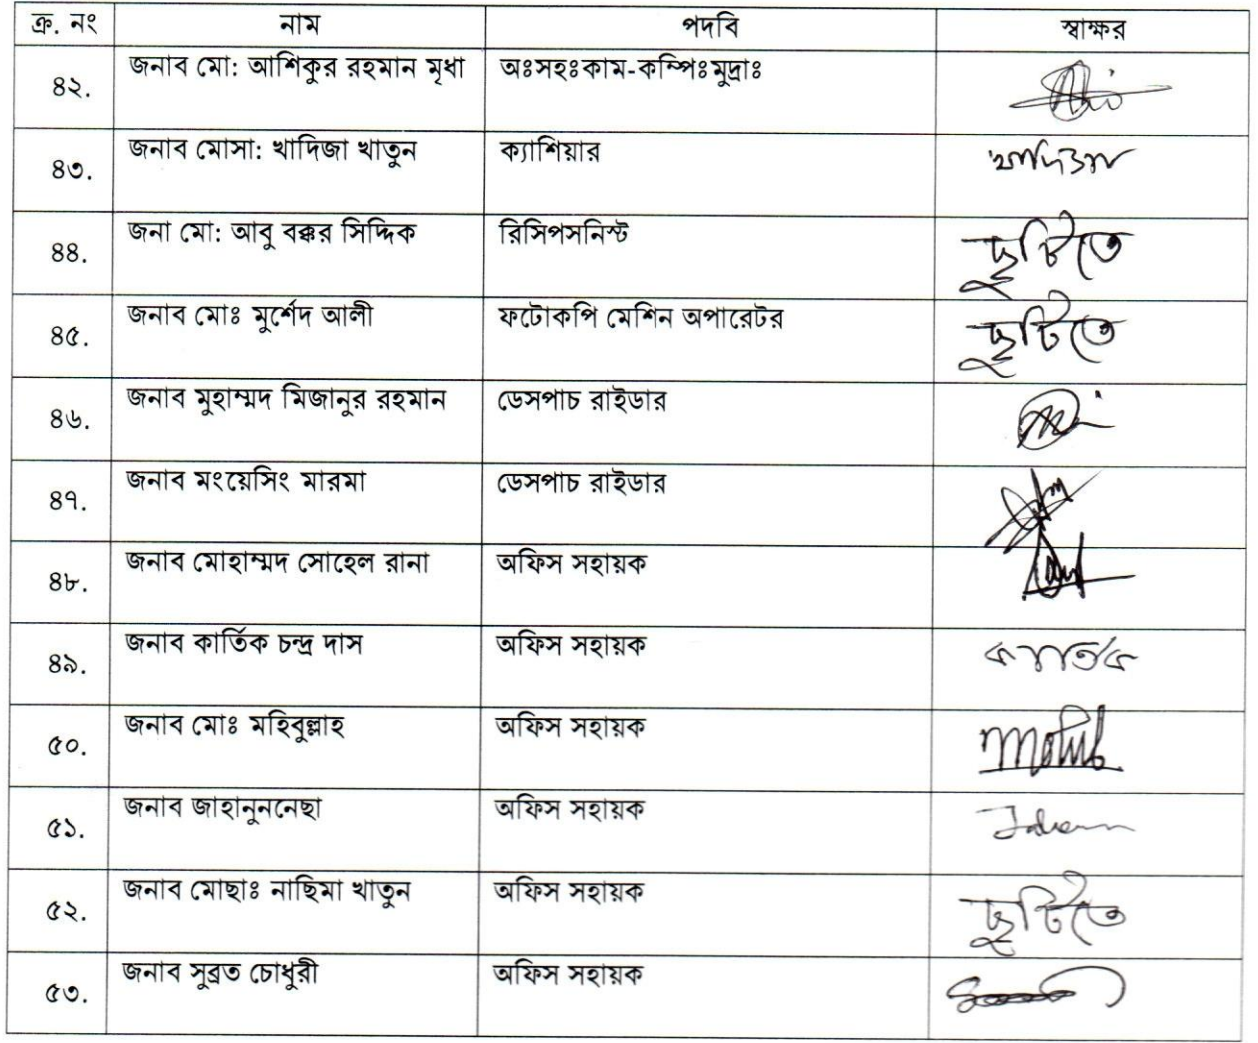 ক্র. নং নাম পদবি স্বাক্ষর
৪২. জনাব মো: আশিকুর রহমান মৃধা অঃসহঃকাম-কম্পিঃমুদ্রাঃ
৪৩. জনাব মোসা: খাদিজা খাতুন ক্যাশিয়ার খাদিজা
৪৪. জনা মো: আবু বক্কর সিদ্দিক রিসিপসনিস্ট ছুটিতে
৪৫. জনাব মোঃ মুর্শেদ আলী ফটোকপি মেশিন অপারেটর ছুটিতে
৪৬. জনাব মুহাম্মদ মিজানুর রহমান ডেসপাচ রাইডার
৪৭. জনাব মংয়েসিং মারমা ডেসপাচ রাইডার
৪৮. জনাব মোহাম্মদ সোহেল রানা অফিস সহায়ক
৪৯. জনাব কার্তিক চন্দ্র দাস অফিস সহায়ক কার্তিক
৫০. জনাব মোঃ মহিবুল্লাহ অফিস সহায়ক
৫১. জনাব জাহানুননেছা অফিস সহায়ক
৫২. জনাব মোছাঃ নাছিমা খাতুন অফিস সহায়ক ছুটিতে
৫৩. জনাব সুব্রত চৌধুরী অফিস সহায়ক